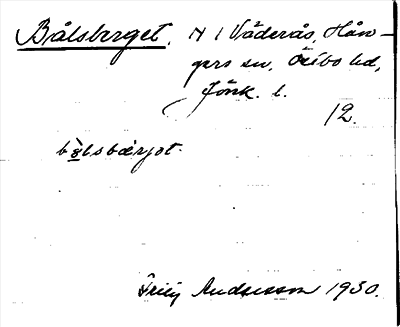 Bålsberget. N i Våderås, Hån-
gers sn, Östbo hd,
Jönk. l.
12.
bålsbærjət.
Andersson 1930.